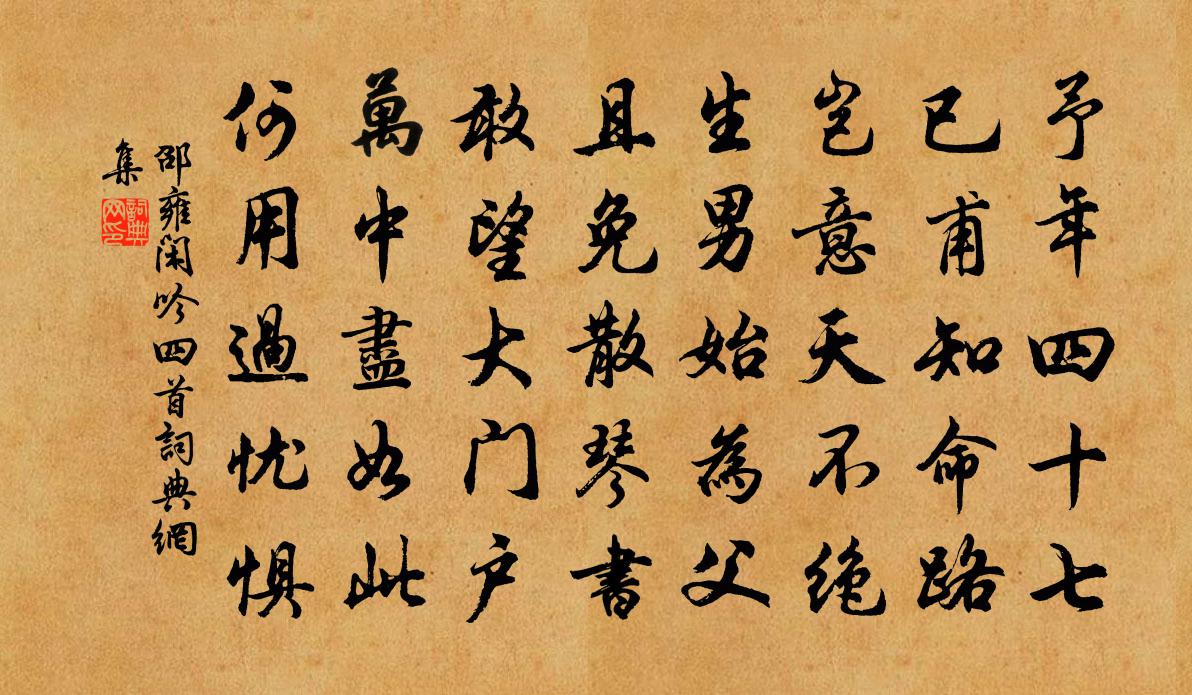 予年四十七
已甫知命路
岂意天不绝
生男始為父
且免散琴書
敢望大门户
萬中盡如此
何用過忧惧
邵雍闲吟四首詞典網
集
詞典
网印